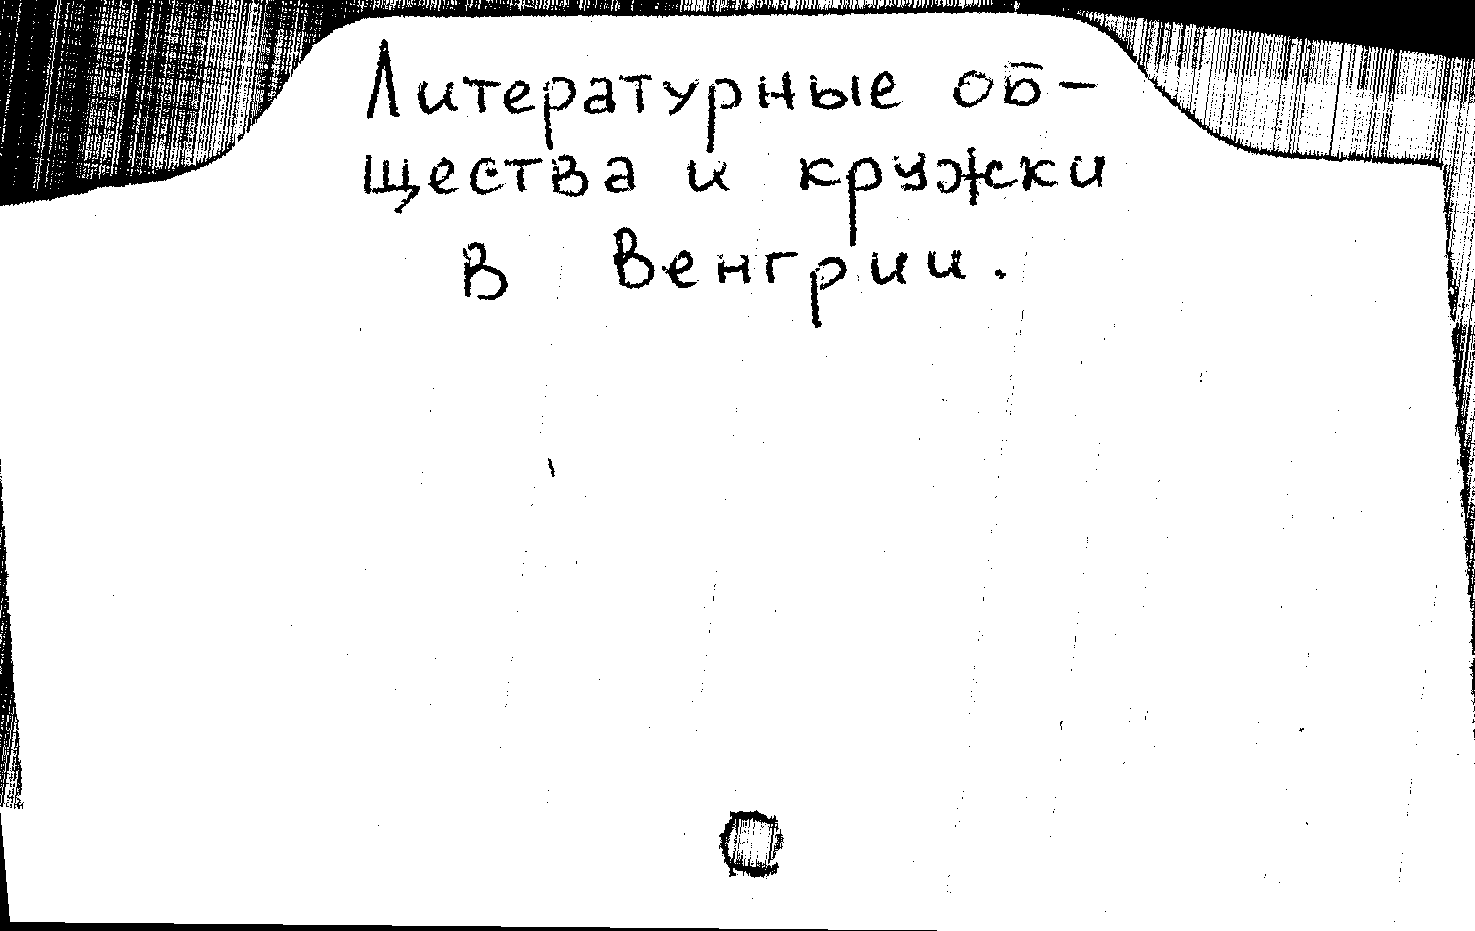 Литературные об-
щества и кружки
в Венгрии.